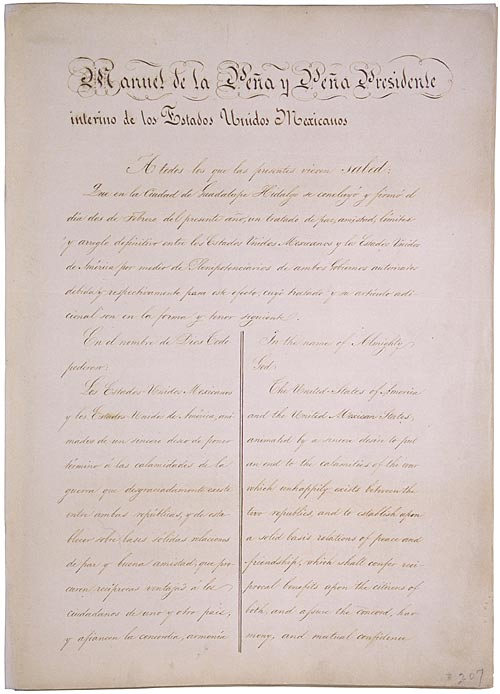 Manuel de la Peña y Peña Presidente
interino de los Estados Unidos Mexicanos
A todos los que las presentes vieren salud:
Que en la Ciudad de Guadalupe Hidalgo se concluyó y firmó el
día dos de Febrero del presente año, un tratado de paz, amistad, límites
y arreglo definitivo entre los Estados Unidos Mexicanos y los Estados Unidos
de América por medio de Plenipotenciarios de ambos Gobiernos autorizados
debida y respectivamente para este efecto, cuyo tratado y su artículo adi-
cional son en la forma y tenor siguiente.
En el nombre de Dios Todo
poderoso:
Los Estados-Unidos Mexicanos
y los Estados-Unidos de América, ani-
mados de un sincero deseo de poner
término á las calamidades de la
guerra que desgraciadamente existe
entre ambas repúblicas, y de esta-
blecer sobre bases sólidas relaciones
de paz y buena amistad, que pro-
curen recíprocas ventajas á los
ciudadanos de uno y otro país,
y afiancen la concordia, armonía
In the name of Almighty
God:
The United States of America
and the United Mexican States,
animated by a sincere desire to put
an end to the calamities of the war
which unhappily exists between the
two republics, and to establish upon
a solid basis relations of peace and
friendship, which shall confer reci-
procal benefits upon the citizens of
both, and assure the concord, har-
mony, and mutual confidence
207